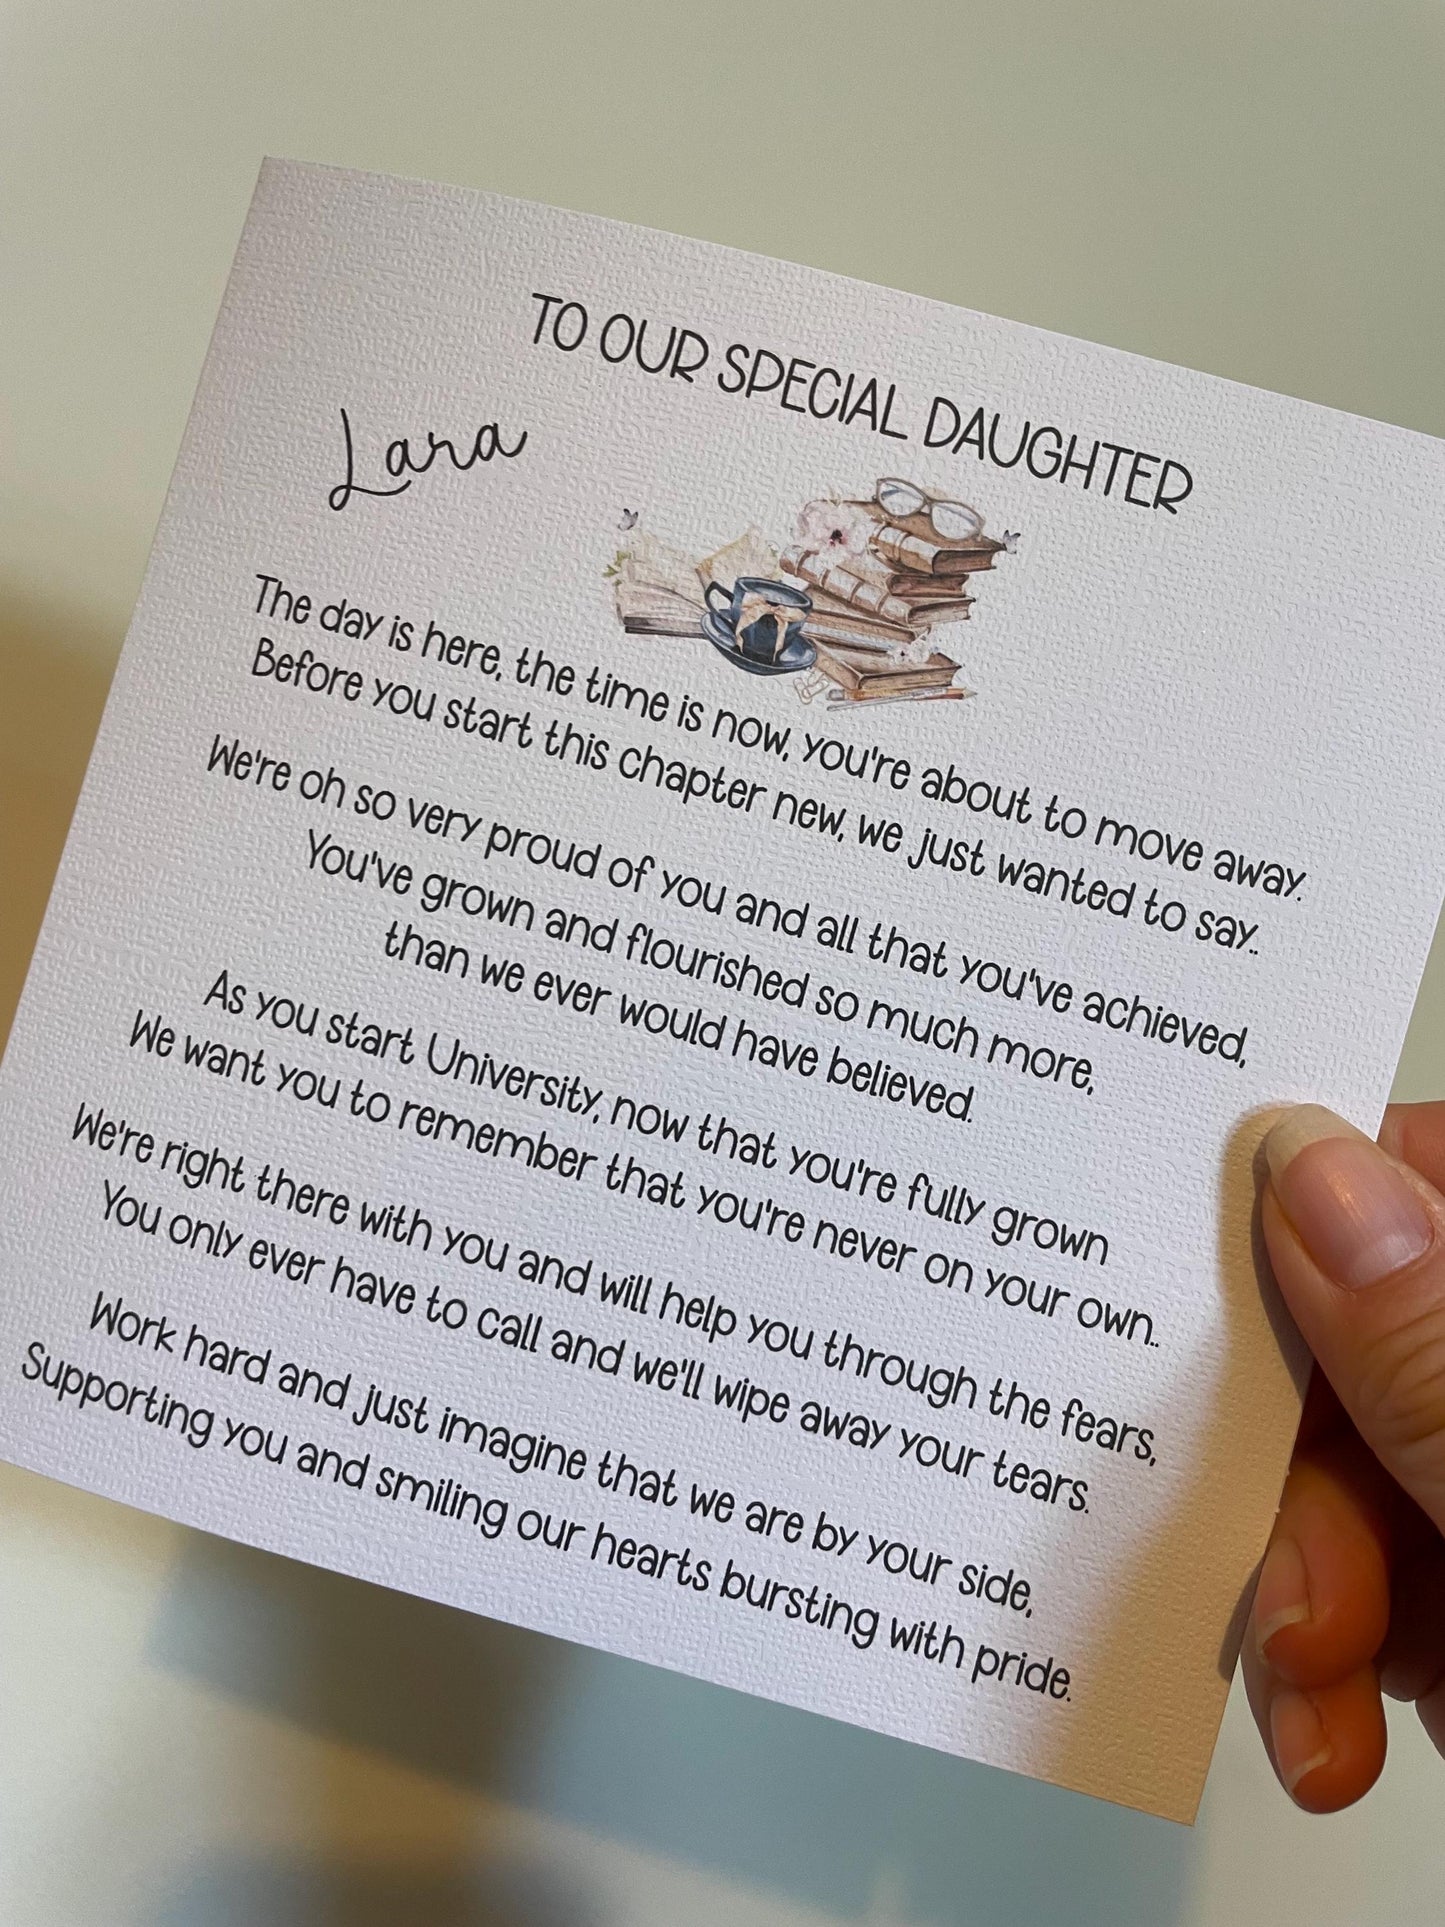 TO OUR SPECIAL DAUGHTER
Lara
The day is here, the time is now, you're about to move away.
Before you start this chapter new, we just wanted to say..
We're oh so very proud of you and all that you've achieved,
You've grown and flourished so much more,
than we ever would have believed.
As you start University, now that you're fully grown
We want you to remember that you're never on your own..
We're right there with you and will help you through the fears,
You only ever have to call and we'll wipe away your tears.
Work hard and just imagine that we are by your side,
Supporting you and smiling our hearts bursting with pride.